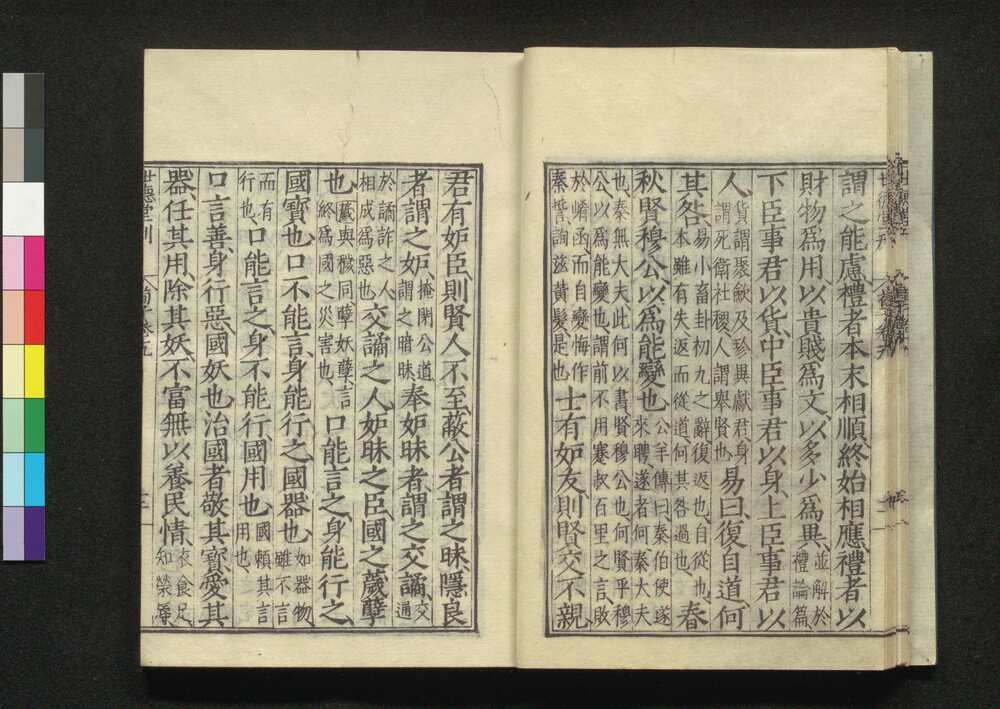 謂之能慮禮者本末相順終始相應禮者以
財物爲用以貴賤爲文以多少爲異並解於禮論篇
下臣事君以貨中臣事君以身上臣事君以
人貨謂聚斂及珍異獻君身謂死衛社稷人謂舉賢也易曰復自道何
其咎易小畜卦初九之辭復返也自從也本雖有失返而從道何其咎過也春
秋賢穆公以爲能變也公羊傳曰秦伯使遂來聘遂者何秦大夫
也秦無大夫此何以書賢穆公也何賢乎穆
公以爲能變也謂前不用蹇叔百里之言敗
於崤函而自變悔作
秦誓詢茲黃髮是也士有妒友則賢交不親
君有妒臣則賢人不至蔽公者謂之昧隱良
者謂之妒掩閉公道謂之暗昧奉妒昧者謂之交譎交通
於譎詐之人相成爲惡也交譎之人妒昧之臣國之薉孽
也薉與穢同孽妖孽言終爲國之災害也口能言之身能行之
國寶也口不能言身能行之國器也如器物雖不言
而有行也口能言之身不能行國用也國賴其言用也
口言善身行惡國妖也治國者敬其寶愛其
器任其用除其妖不富無以養民情衣食足知榮辱
世德堂刊